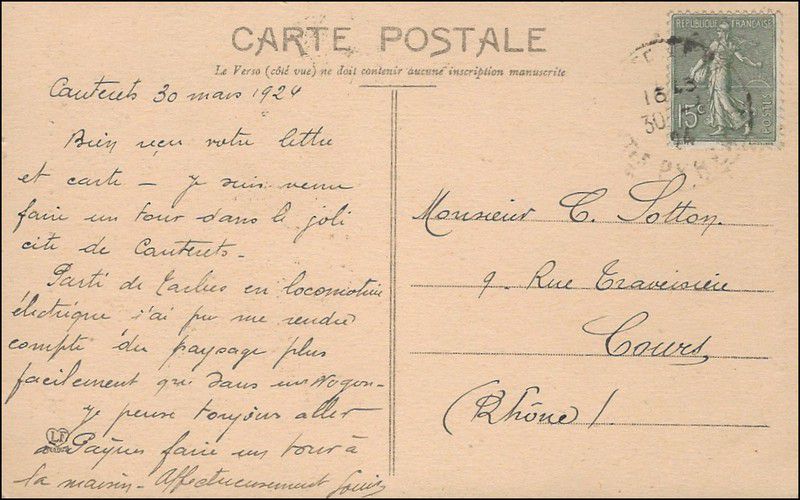 CARTE POSTALE
Le Verso (côté vue) ne doit contenir aucune inscription manuscrite
Cauterets 30 mars 1924
Bien reçu votre lettre
et carte - Je suis venu
faire un tour dans la joli
cite de Cauterets -
Parti de Tarbes en locomotive
électrique j'ai pu me rendre
compte du paysage plus
facilement que dans un Wagon -
Je pense toujours aller
à Payns faire un tour à
la maison - Affectueusement Louis
LF
REPUBLIQUE FRANÇAISE
15c
POSTES
30
24
Monsieur C. Sotton
9. Rue Traversière
Cours
(Rhône)